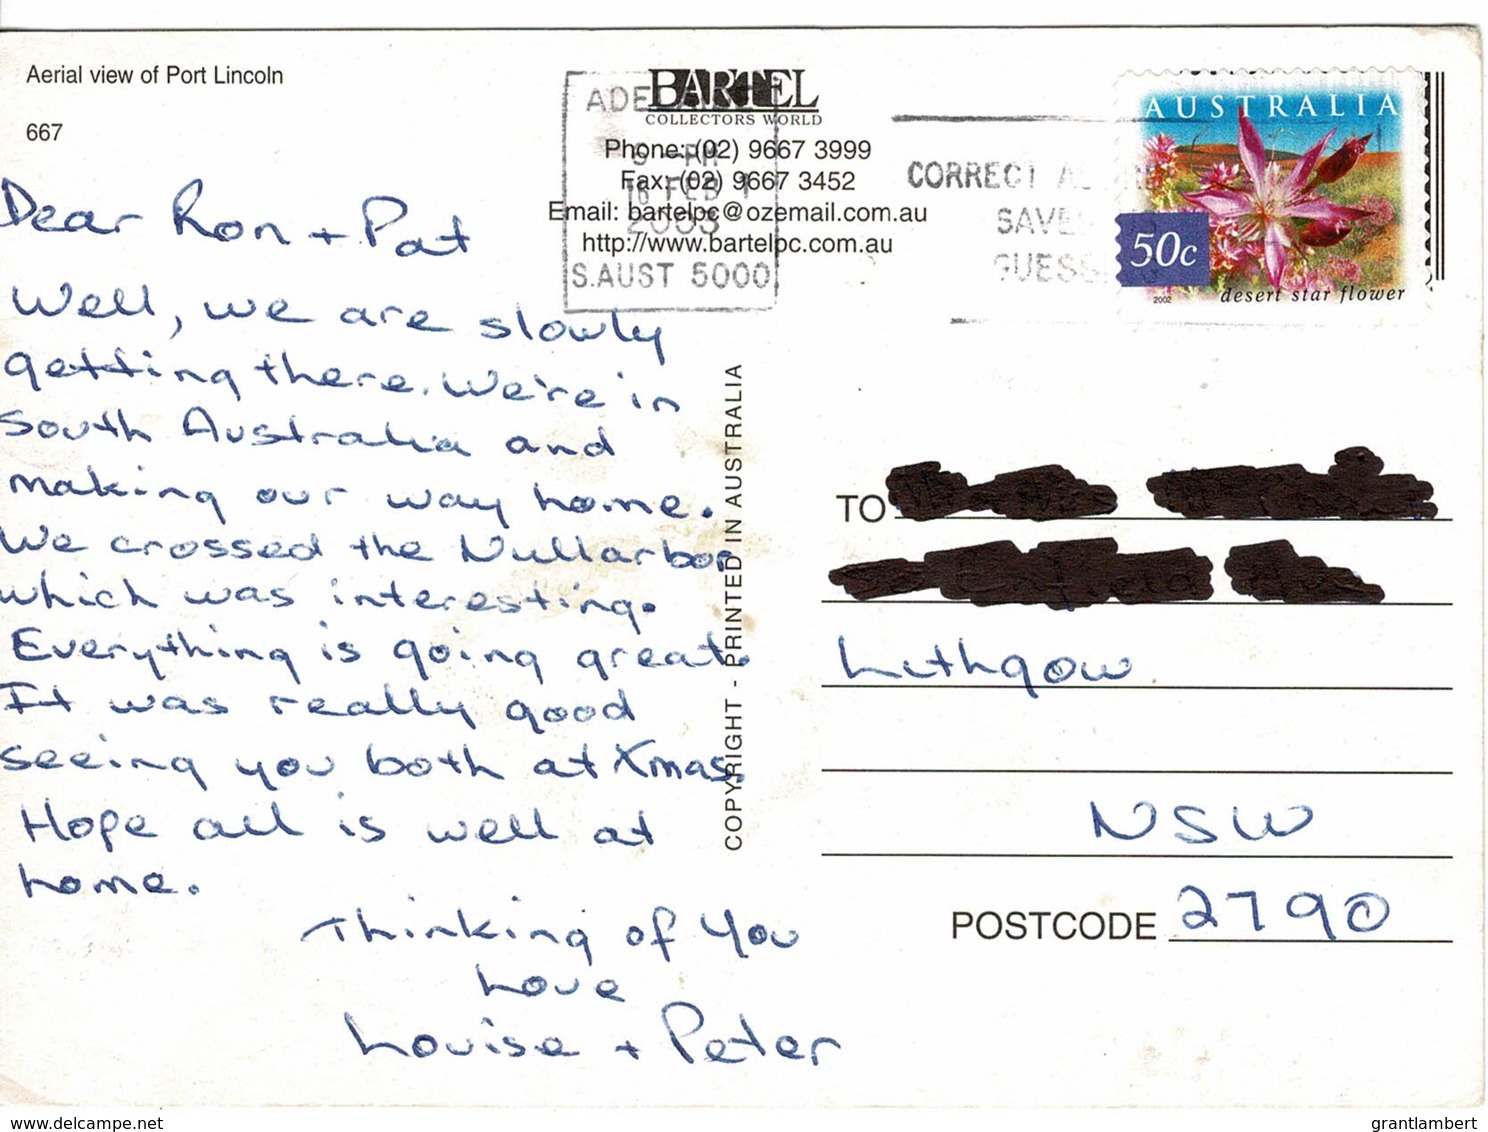 Aerial view of Port Lincoln
667
BARTEL
COLLECTORS WORLD
Phone: (02) 9667 3999
Fax: (02) 9667 3452
Email: bartelpc@ozemail.com.au
http://www.bartelpc.com.au
FEB
2003
S.AUST 5000
CORRECT
AUSTRALIA
50c
2002
desert star flower
Dear Ron + Pat
Well, we are slowly
getting there. We're in
South Australia and
making our way home.
We crossed the Nullarbor
which was interesting.
Everything is going great.
It was really good
seeing you both at Xmas.
Hope all is well at
home.
Thinking of You
Love
Louise + Peter
COPYRIGHT - PRINTED IN AUSTRALIA
TO
Lithgow
NSW
POSTCODE 2790
delcampe.net
grantlambert